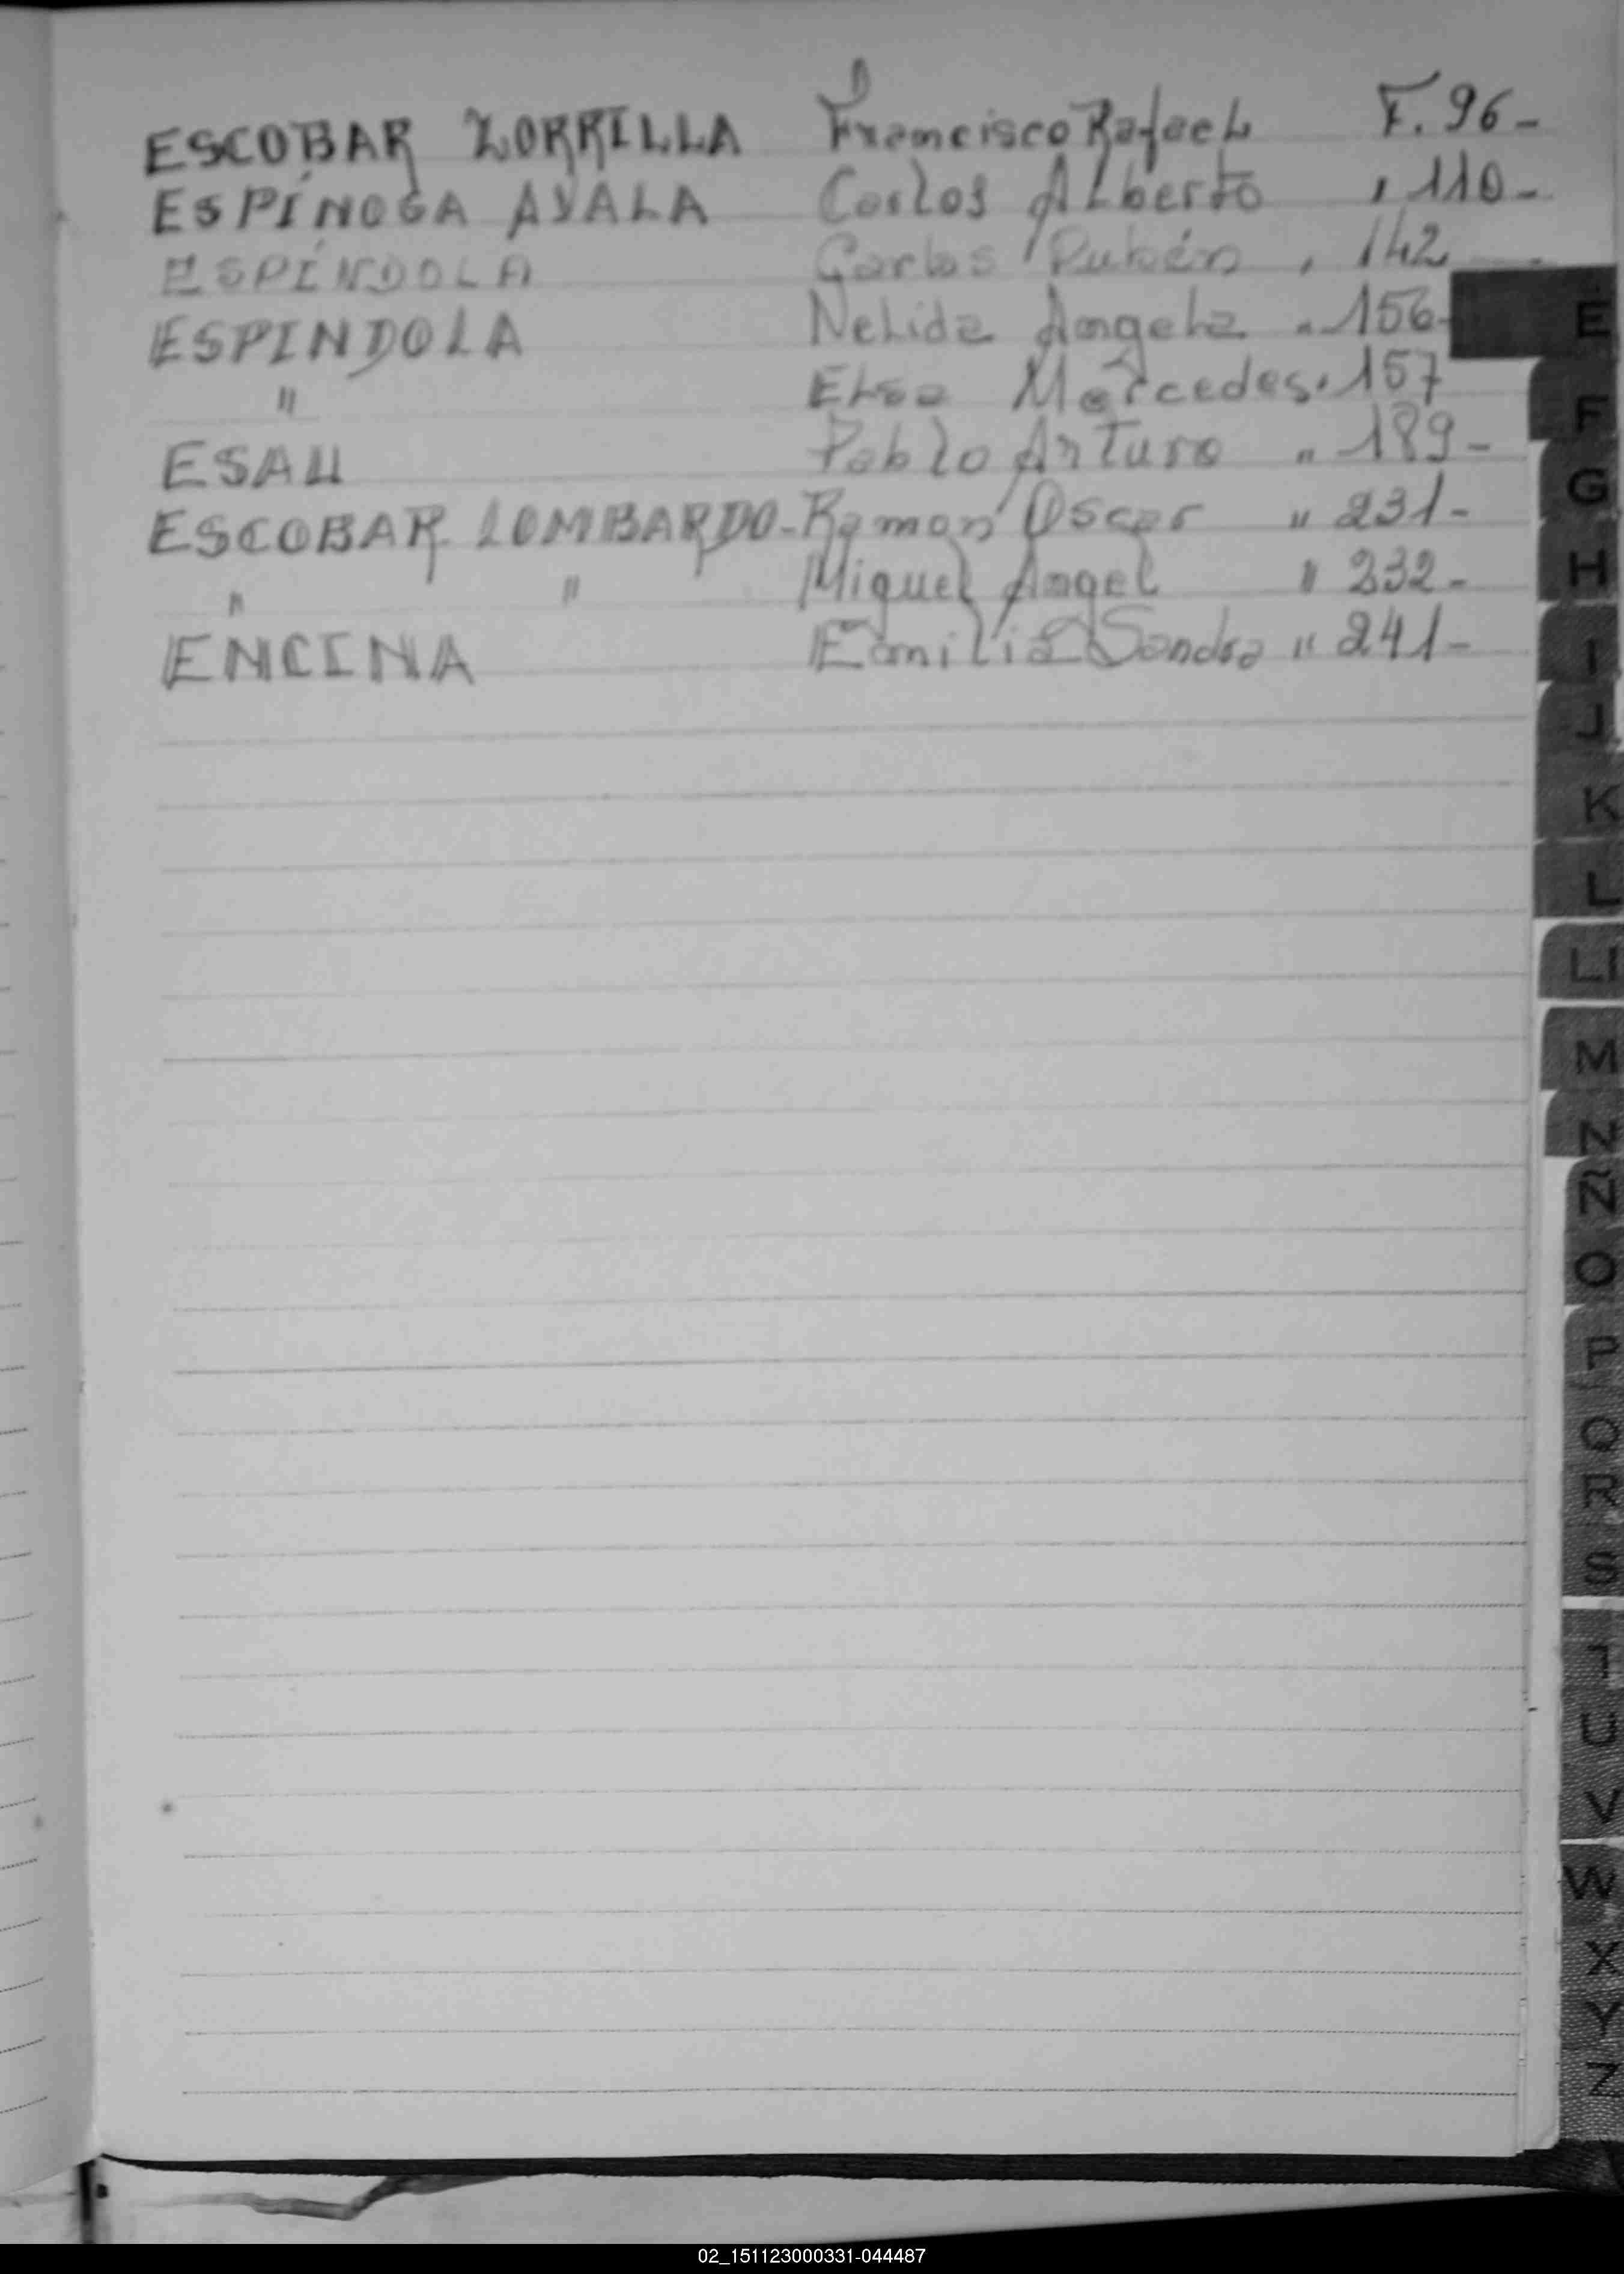 ESCOBAR ZORRILLA Francisco Rafael F. 96-
ESPÍNOSA AYALA Carlos Alberto " 110-
ESPÍNDOLA Carlos Rubén " 142
ESPINDOLA Nelida Angela " 156-
" Elsa Mercedes " 157
ESAU Pablo Arturo " 189-
ESCOBAR LOMBARDO- Ramon Oscar " 231-
" " Miguel Angel " 232-
ENCINA Emilia Sandra " 241-
E
F
G
H
I
J
K
L
Ll
M
N
Ñ
O
P
Q
R
S
T
U
V
W
X
Y
Z
02_151123000331-044487